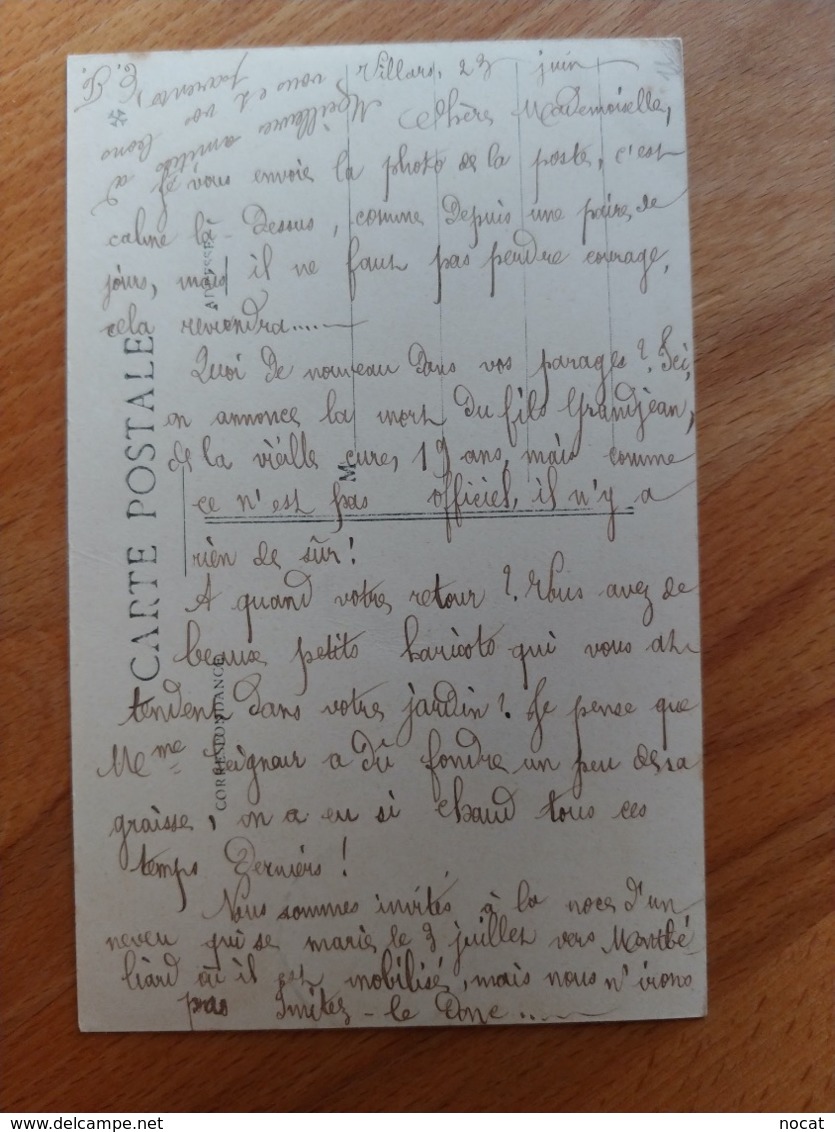 Villars, 23 juin
Chère Mademoiselle,
Je vous envoie la photo de la poste, c'est
calme là-dessus, comme depuis une paire de
jours, mais il ne faut pas perdre courage,
cela reviendra.....
Quoi de nouveau dans vos parages? Ici,
on annonce la mort du fils Grandjean,
de la vieille cure, 19 ans, mais comme
ce n'est pas officiel, il n'y a
rien de sûr!
A quand votre retour? Vous avez de
beaux petits haricots qui vous at
tendent dans votre jardin? Je pense que
Mme a dû fondre un peu de sa
graisse, on a eu si chaud tous ces
temps derniers!
Nous sommes invités à la noce d'un
neveu qui se marie le 3 juillet vers Montbé
liard où il est mobilisé, mais nous n'irons
pas Imitez-le donc.....
Meilleures amitiés à
vous et vos bons
parents,
CARTE POSTALE
CORRESPONDANCE
ADRESSE
M
nocat